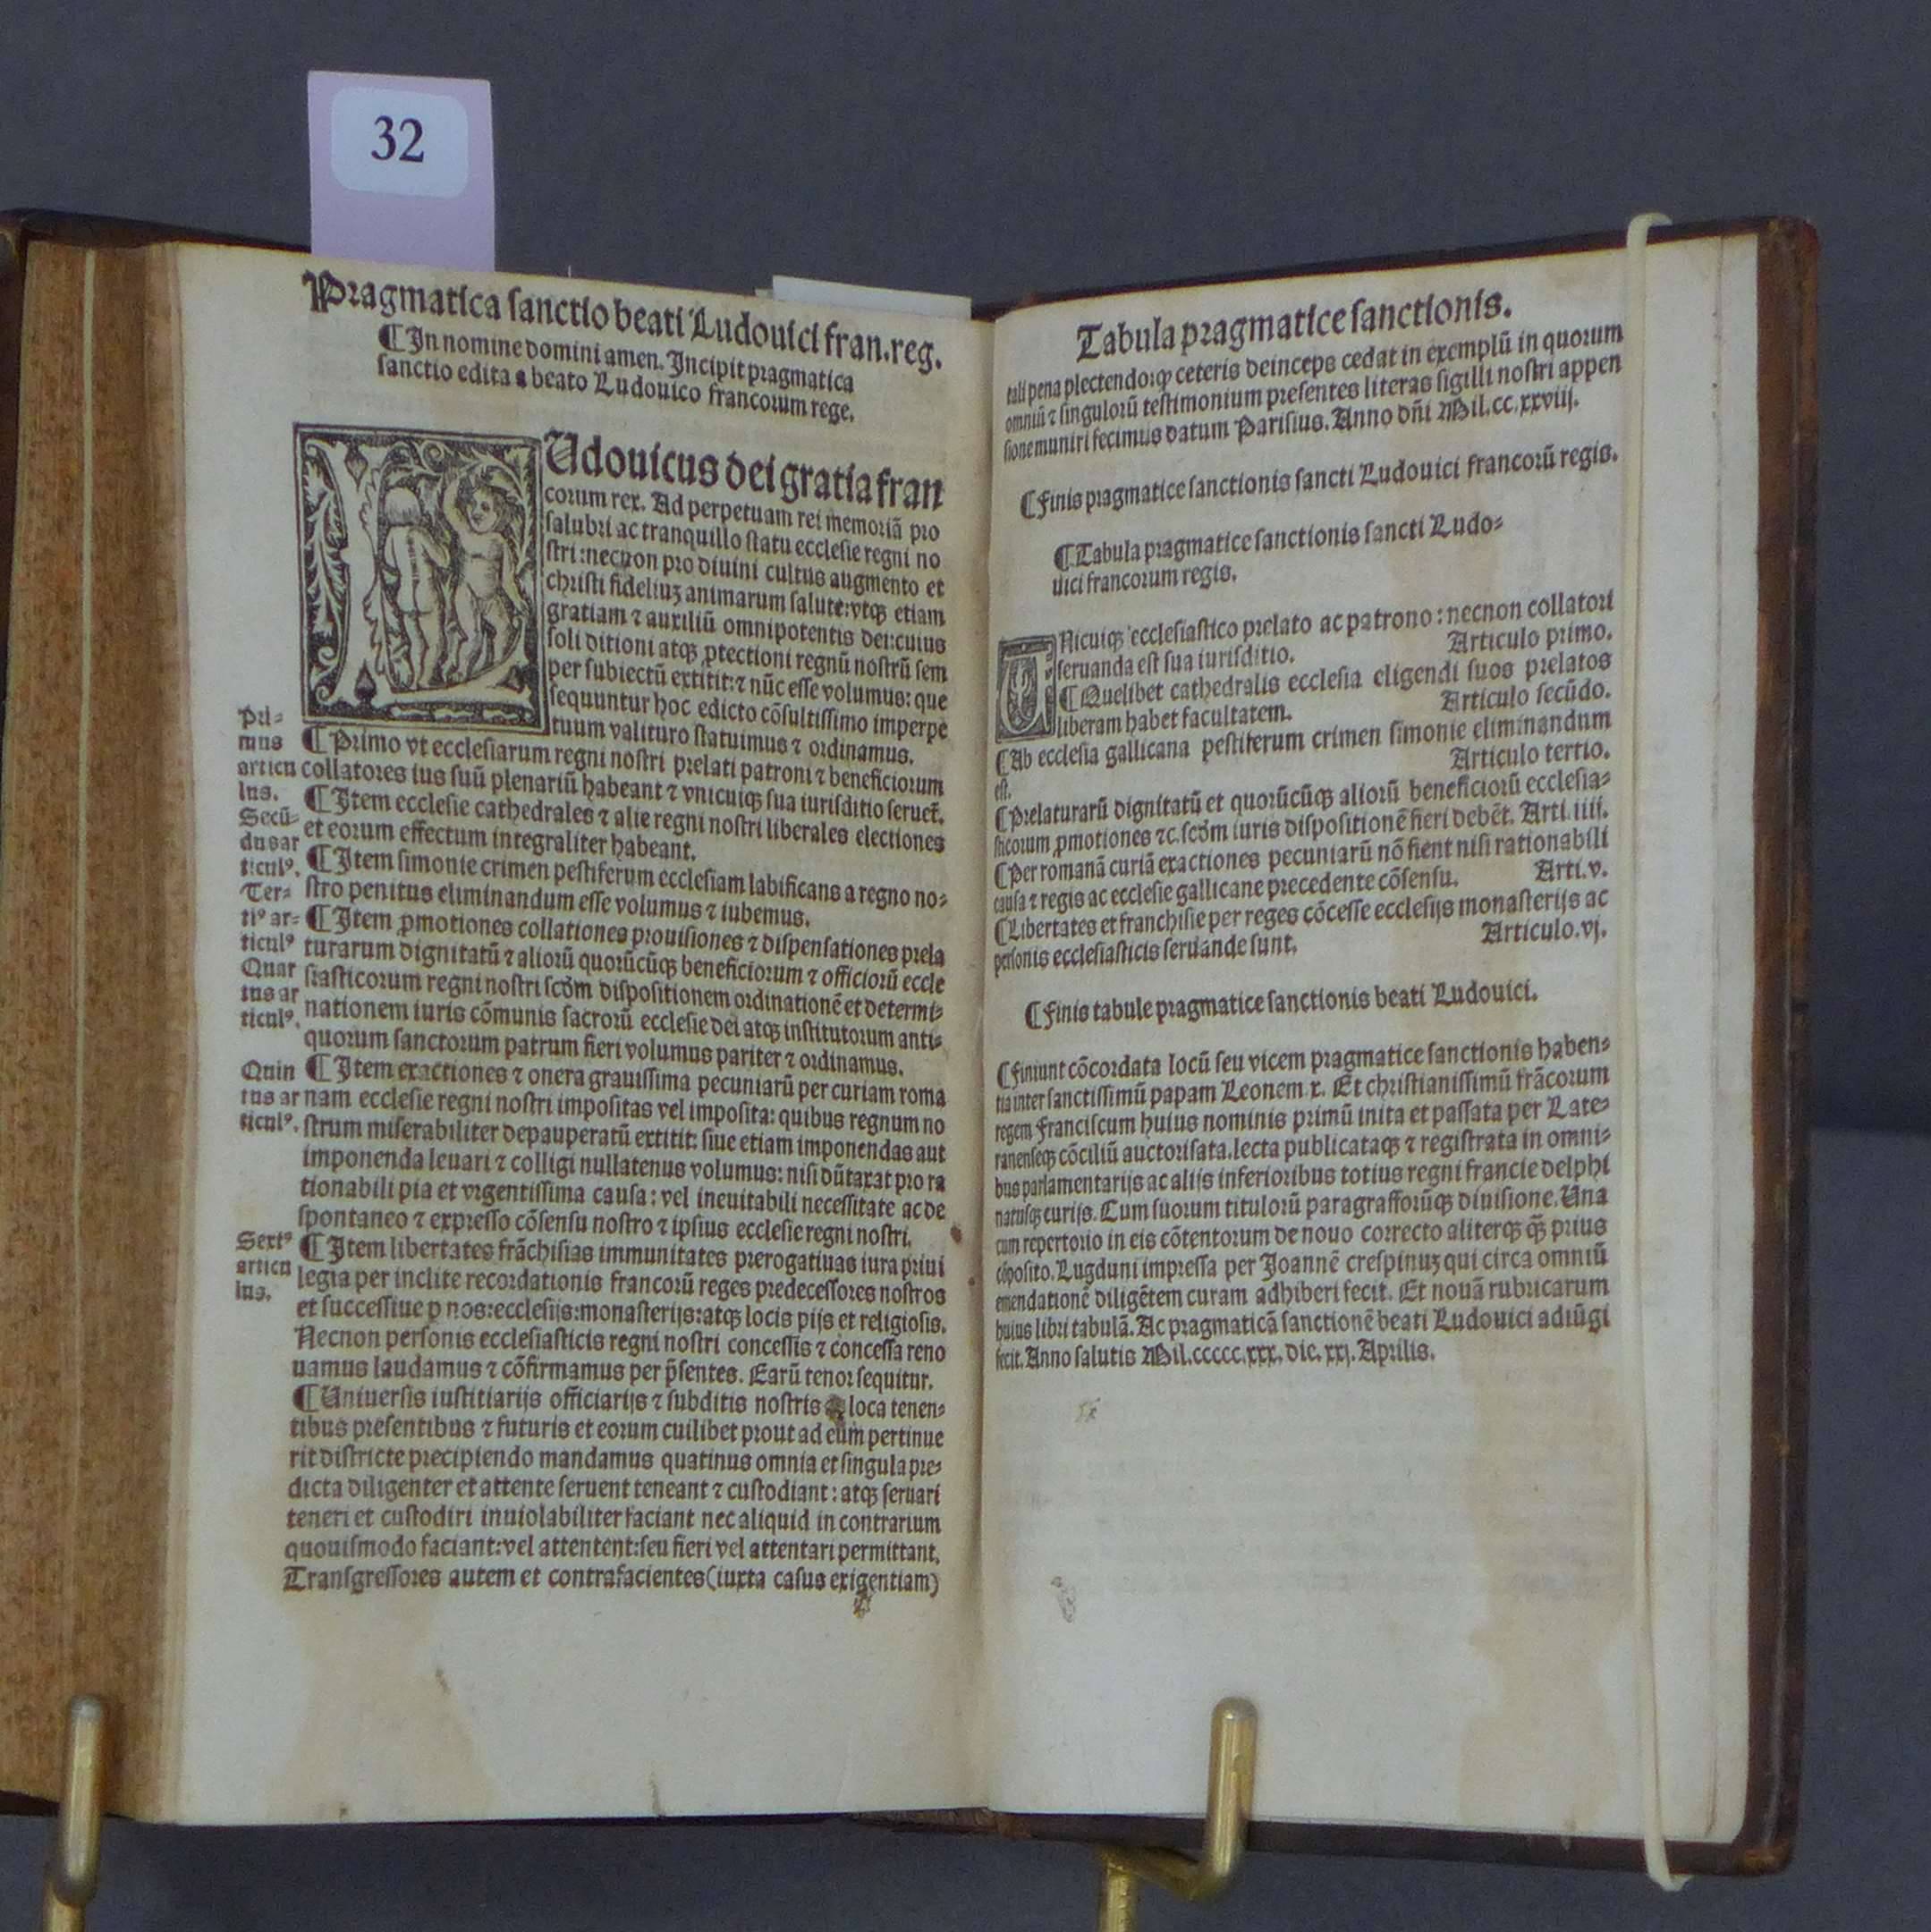 32
Pragmatica sanctio beati Ludouici fran.reg.
¶ In nomine domini amen. Incipit pragmatica
sanctio edita a beato Ludouico francorum rege.
Udouicus dei gratia fran
corum rex. Ad perpetuam rei memoriã pro
salubri ac tranquillo statu ecclesie regni no
stri: necnon pro diuini cultus augmento et
christi fideliuʒ animarum salute: vtqʒ etiam
gratiam ⁊ auxiliũ omnipotentis dei: cuius
soli ditioni atqʒ ꝓtectioni regnũ nostrũ sem
per subiectũ extitit: ⁊ nũc esse volumus: que
sequuntur hoc edicto cõsultissimo imperpe
tuum valituro statuimus ⁊ ordinamus.
Pri-
mus
articu
lus.
¶ Primo vt ecclesiarum regni nostri prelati patroni ⁊ beneficiorum
collatores ius suũ plenariũ habeant ⁊ vnicuiqʒ sua iurisditio seruet̃.
Secũ-
dus ar
ticulꝰ.
¶ Item ecclesie cathedrales ⁊ alie regni nostri liberales electiones
et eorum effectum integraliter habeant.
Ter-
tiꝰ ar-
ticulꝰ
¶ Item simonie crimen pestiferum ecclesiam labificans a regno no-
stro penitus eliminandum esse volumus ⁊ iubemus.
Quar
tus ar
ticulꝰ.
¶ Item ꝓmotiones collationes prouisiones ⁊ dispensationes prela
turarum dignitatũ ⁊ aliorũ quorũcũqʒ beneficiorum ⁊ officiorũ eccle
siasticorum regni nostri scḋm dispositionem ordinationẽ et determi-
nationem iuris cõmunis sacrorũ ecclesie dei atqʒ institutorum anti-
quorum sanctorum patrum fieri volumus pariter ⁊ ordinamus.
Quin
tus ar
ticulꝰ.
¶ Item exactiones ⁊ onera grauissima pecuniarũ per curiam roma
nam ecclesie regni nostri impositas vel imposita: quibus regnum no
strum miserabiliter depauperatũ extitit: siue etiam imponendas aut
imponenda leuari ⁊ colligi nullatenus volumus: nisi dũtaxat pro ra
tionabili pia et vrgentissima causa: vel ineuitabili necessitate ac de
spontaneo ⁊ expresso cõsensu nostro ⁊ ipsius ecclesie regni nostri.
Sextꝰ
articu
lus.
¶ Item libertates frãchisias immunitates prerogatiuas iura priui
legia per inclite recordationis francorũ reges predecessores nostros
et successiue ꝑ nos: ecclesijs: monasterijs: atqʒ locis pijs et religiosis.
Necnon personis ecclesiasticis regni nostri concessis ⁊ concessa reno
uamus laudamus ⁊ cõfirmamus per p̃sentes. Earũ tenor sequitur.
¶ Uniuersis iustitiarijs officiarijs ⁊ subditis nostris loca tenen-
tibus presentibus ⁊ futuris et eorum cuilibet prout ad eum pertinue
rit districte precipiendo mandamus quatinus omnia et singula pre-
dicta diligenter et attente seruent teneant ⁊ custodiant: atqʒ seruari
teneri et custodiri inuiolabiliter faciant nec aliquid in contrarium
quouismodo faciant: vel attentent: seu fieri vel attentari permittant.
Transgressores autem et contrafacientes (iuxta casus exigentiam)
Tabula pragmatice sanctionis.
tali pena plectendo: qꝙ ceteris deinceps cedat in exemplũ in quorum
omniũ ⁊ singulorũ testimonium presentes literas sigilli nostri appen
sione muniri fecimus datum Parisius. Anno dñi Mil.cc.xxviij.
¶ Finis pragmatice sanctionis sancti Ludouici francorũ regis.
¶ Tabula pragmatice sanctionis sancti Ludo-
uici francorum regis.
UNicuiqʒ ecclesiastico prelato ac patrono: necnon collatori
seruanda est sua iurisditio. Articulo primo.
¶ Quelibet cathedralis ecclesia eligendi suos prelatos
liberam habet facultatem. Articulo secũdo.
¶ Ab ecclesia gallicana pestiferum crimen simonie eliminandum
est. Articulo tertio.
¶ Prelaturarũ dignitatũ et quorũcũqʒ aliorũ beneficiorũ ecclesia-
sticorum ꝓmotiones ⁊c. scḋm iuris dispositionẽ fieri debẽt. Arti. iiij.
¶ Per romanã curiã exactiones pecuniarũ nõ fient nisi rationabili
causa ⁊ regis ac ecclesie gallicane precedente cõsensu. Arti. v.
¶ Libertates et franchisie per reges cõcesse ecclesijs monasterijs ac
personis ecclesiasticis seruande sunt. Articulo. vj.
¶ Finis tabule pragmatice sanctionis beati Ludouici.
¶ Finiunt cõcordata locũ seu vicem pragmatice sanctionis haben-
tia inter sanctissimũ papam Leonem. x. Et christianissimũ frãcorum
regem Franciscum huius nominis primũ inita et passata per Late-
ranenseqʒ cõciliũ auctorisata. lecta publicataqʒ ⁊ registrata in omni-
bus parlamentarijs ac alijs inferioribus totius regni francie delphi
natusqʒ curijs. Cum suorum titulorũ paragrafforũqʒ diuisione. Una
cum repertorio in eis cõtentorum de nouo correcto aliterqʒ q̃ꝫ prius
cõposito. Lugduni impressa per Joannẽ crespinuʒ qui circa omniũ
emendationẽ diligẽtem curam adhiberi fecit. Et nouã rubricarum
huius libri tabulã. Ac pragmaticã sanctionẽ beati Ludouici adiũgi
fecit. Anno salutis Mil.ccccc.xxx. die. xxj. Aprilis.